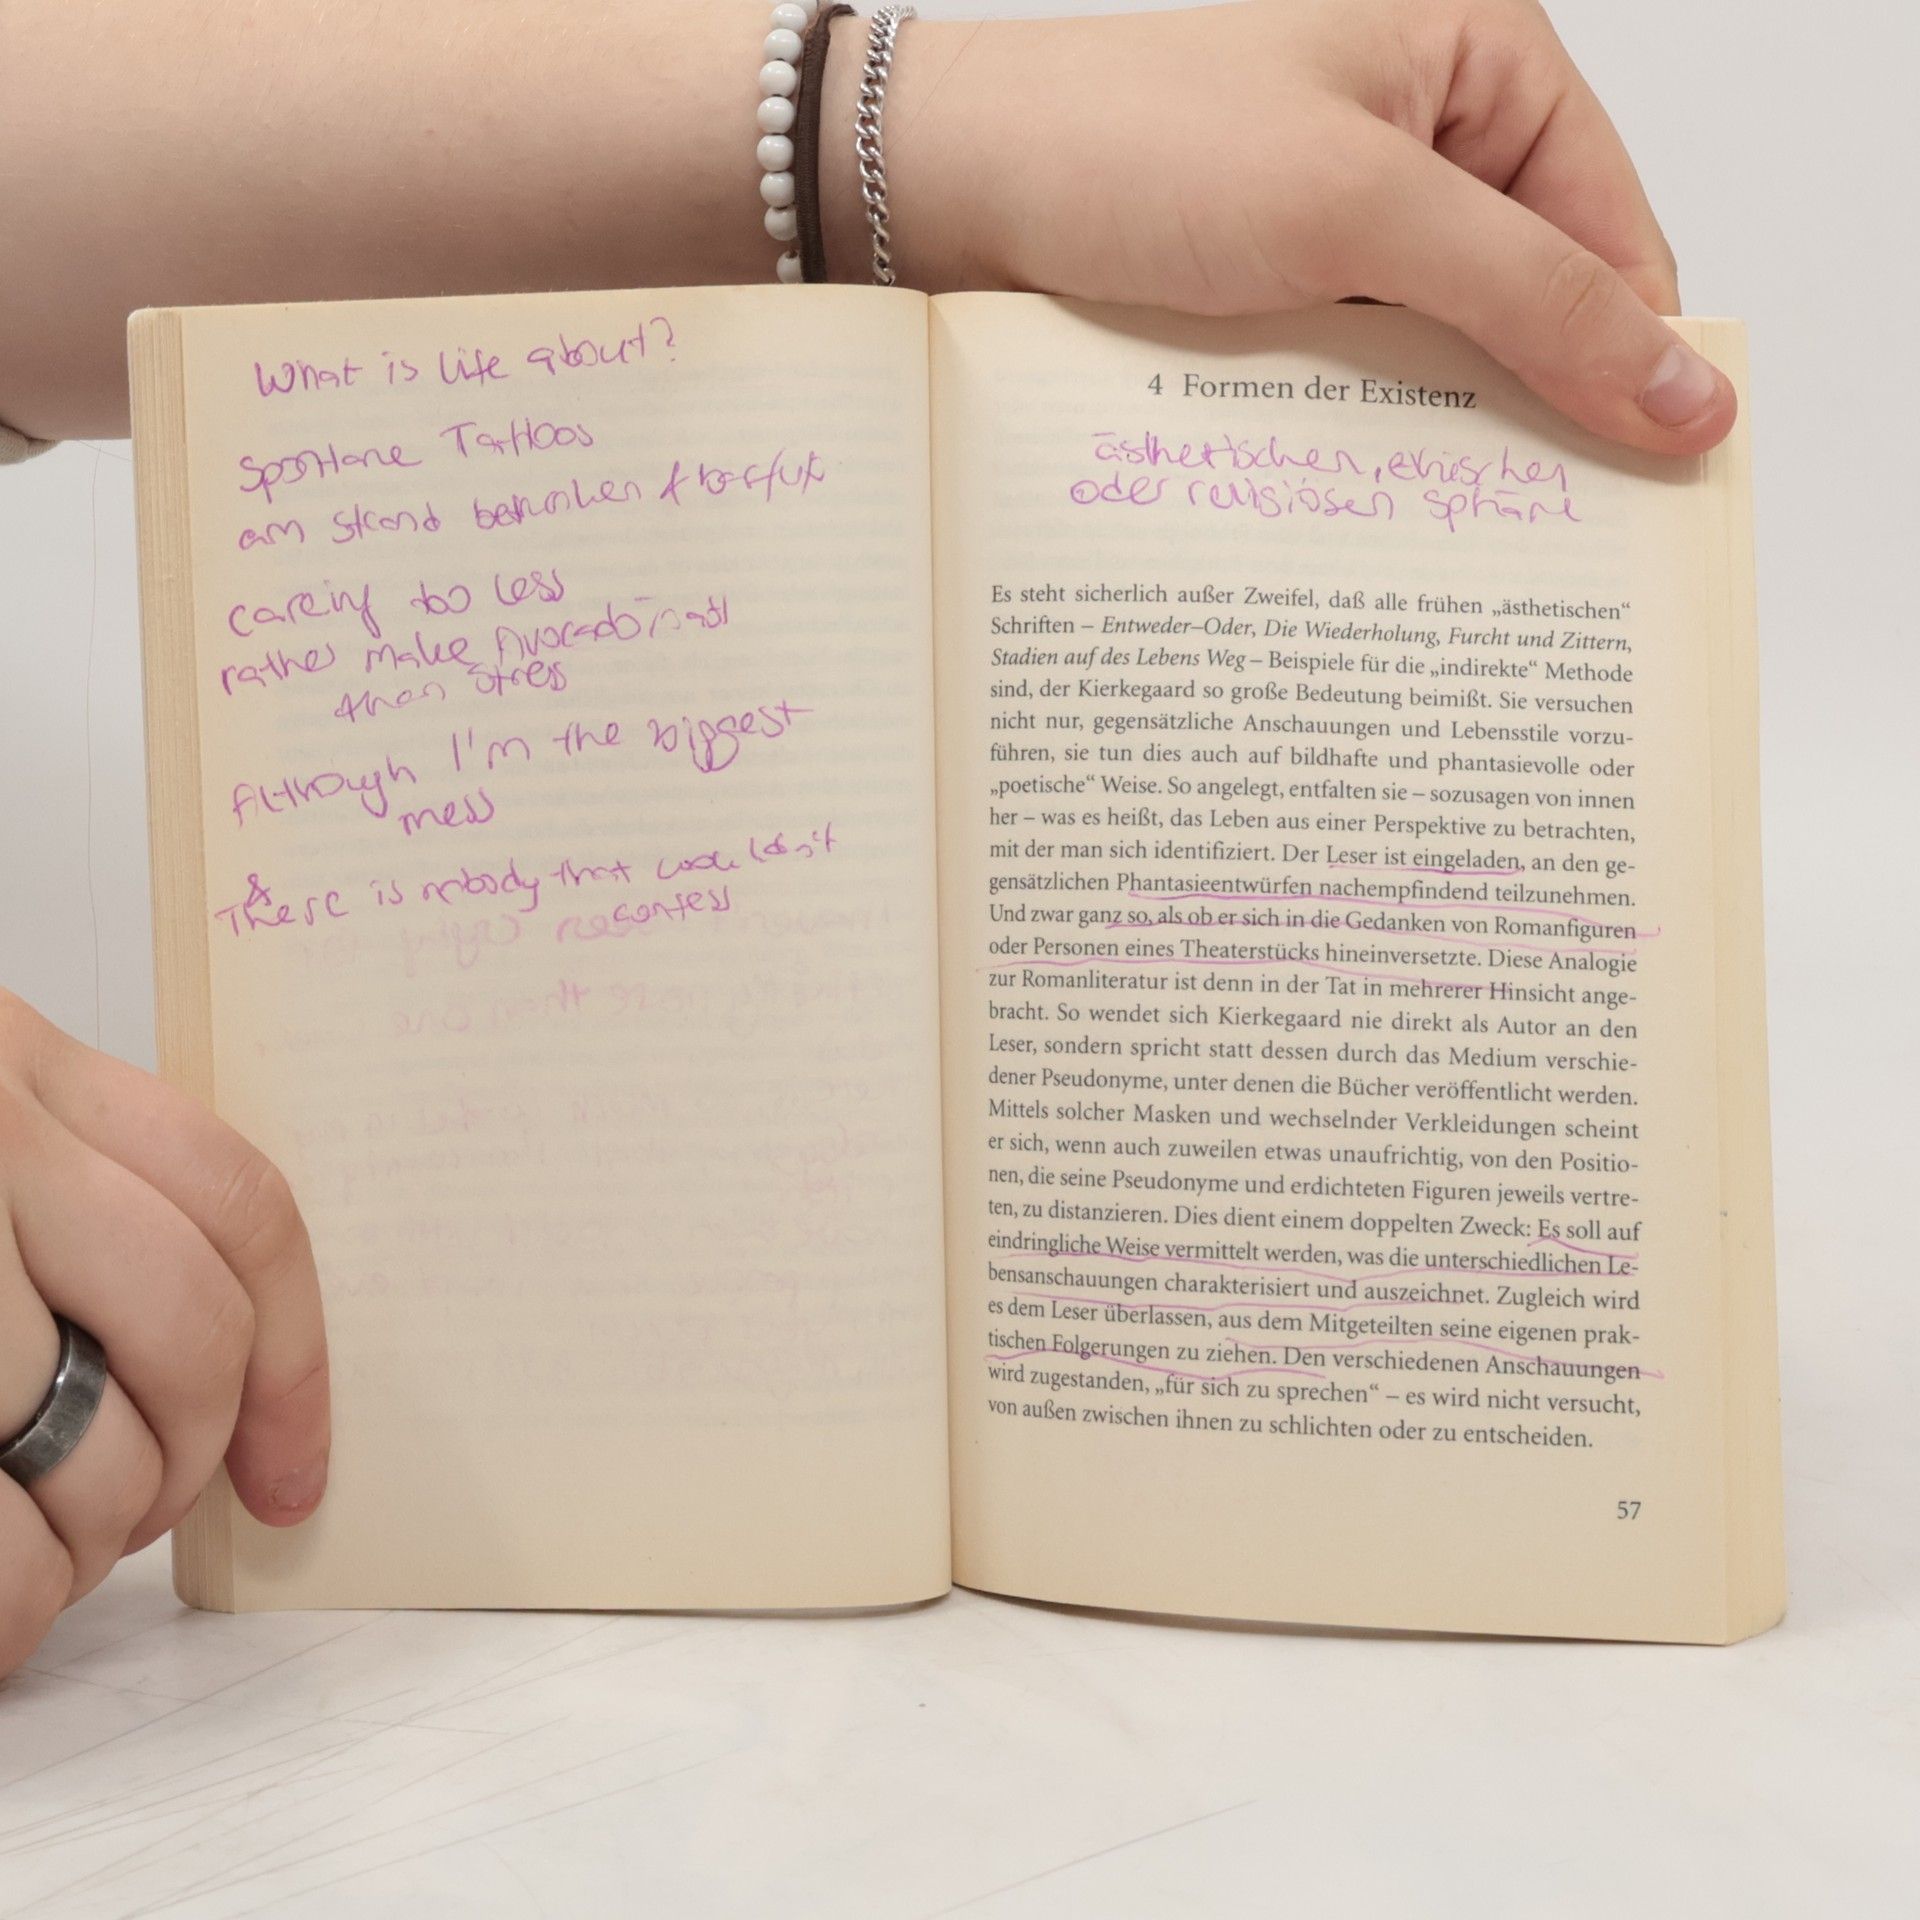 What is life about?
Spontane Tattoos
am Strand betrunken & barfuß
careing too less
rather make Avocadotoast
than stress
Although I'm the biggest
mess
& There is nobody that
confess
4 Formen der Existenz
ästhetischen, ethischen
oder religiösen Sphäre
Es steht sicherlich außer Zweifel, daß alle frühen „ästhetischen“
Schriften – Entweder–Oder, Die Wiederholung, Furcht und Zittern,
Stadien auf des Lebens Weg – Beispiele für die „indirekte“ Methode
sind, der Kierkegaard so große Bedeutung beimißt. Sie versuchen
nicht nur, gegensätzliche Anschauungen und Lebensstile vorzu-
führen, sie tun dies auch auf bildhafte und phantasievolle oder
„poetische“ Weise. So angelegt, entfalten sie – sozusagen von innen
her – was es heißt, das Leben aus einer Perspektive zu betrachten,
mit der man sich identifiziert. Der Leser ist eingeladen, an den ge-
gensätzlichen Phantasieentwürfen nachempfindend teilzunehmen.
Und zwar ganz so, als ob er sich in die Gedanken von Romanfiguren
oder Personen eines Theaterstücks hineinversetzte. Diese Analogie
zur Romanliteratur ist denn in der Tat in mehrerer Hinsicht ange-
bracht. So wendet sich Kierkegaard nie direkt als Autor an den
Leser, sondern spricht statt dessen durch das Medium verschie-
dener Pseudonyme, unter denen die Bücher veröffentlicht werden.
Mittels solcher Masken und wechselnder Verkleidungen scheint
er sich, wenn auch zuweilen etwas unaufrichtig, von den Positio-
nen, die seine Pseudonyme und erdichteten Figuren jeweils vertre-
ten, zu distanzieren. Dies dient einem doppelten Zweck: Es soll auf
eindringliche Weise vermittelt werden, was die unterschiedlichen Le-
bensanschauungen charakterisiert und auszeichnet. Zugleich wird
es dem Leser überlassen, aus dem Mitgeteilten seine eigenen prak-
tischen Folgerungen zu ziehen. Den verschiedenen Anschauungen
wird zugestanden, „für sich zu sprechen“ – es wird nicht versucht,
von außen zwischen ihnen zu schlichten oder zu entscheiden.
57